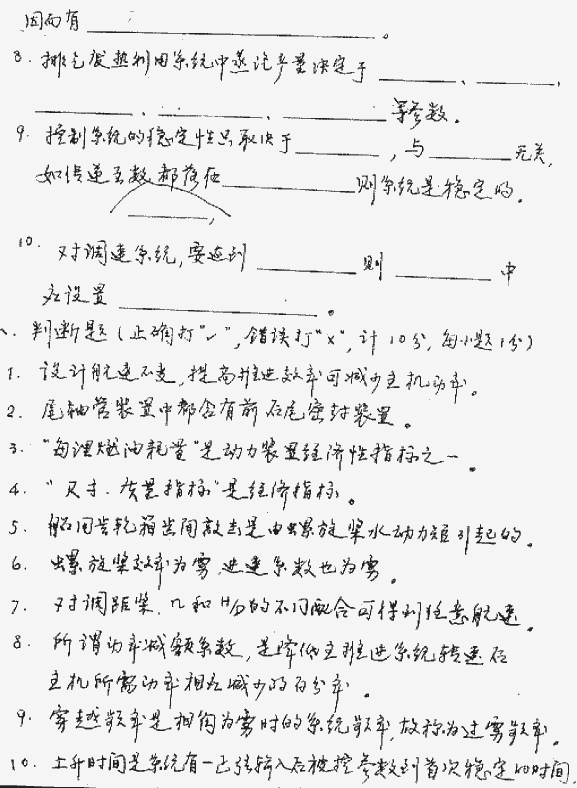 因而有____________。
8. 排气废热利用系统中蒸汽产量决定于______、______、
______、______、______等参数。
9. 控制系统的稳定性只取决于______，与______无关，
如传递函数都落在______则系统是稳定的。
______，
10. 对调速系统，要达到______则______中
应设置____________。
、判断题（正确打"✓"，错误打"×"，计10分，每小题1分）
1. 设计航速不变，提高推进效率可减少主机功率。
2. 尾轴管装置中都含有前后尾密封装置。
3. "每浬燃油耗量"是动力装置经济性指标之一。
4. "尺寸、质量指标"是经济指标。
5. 船用齿轮箱齿间敲击是由螺旋桨水动力矩引起的。
6. 螺旋桨效率为零，进速系数也为零。
7. 对调距桨，n和H/D的不同配合可得到任意航速。
8. 所谓功率减额系数，是降低主推进系统转速后
主机所需功率相应减少的百分率。
9. 穿越频率是相角为零时的系统频率，故称为过零频率。
10. 上升时间是系统有一正弦输入后被控参数到首次稳定的时间。